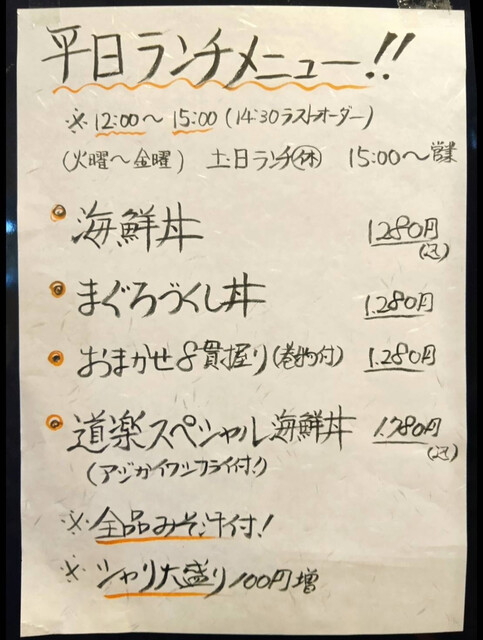 平日ランチメニュー!!
※ 12:00〜15:00 (14:30ラストオーダー)
(火曜〜金曜) 土日ランチ㊡ 15:00〜営業
海鮮丼 1.280円
(込)
まぐろづくし丼 1.280円
おまかせ8貫握り(巻物付) 1.280円
道楽スペシャル海鮮丼 1.780円
(アジかイワシフライ付!) (込)
※全品みそ汁付!
※シャリ大盛り100円増